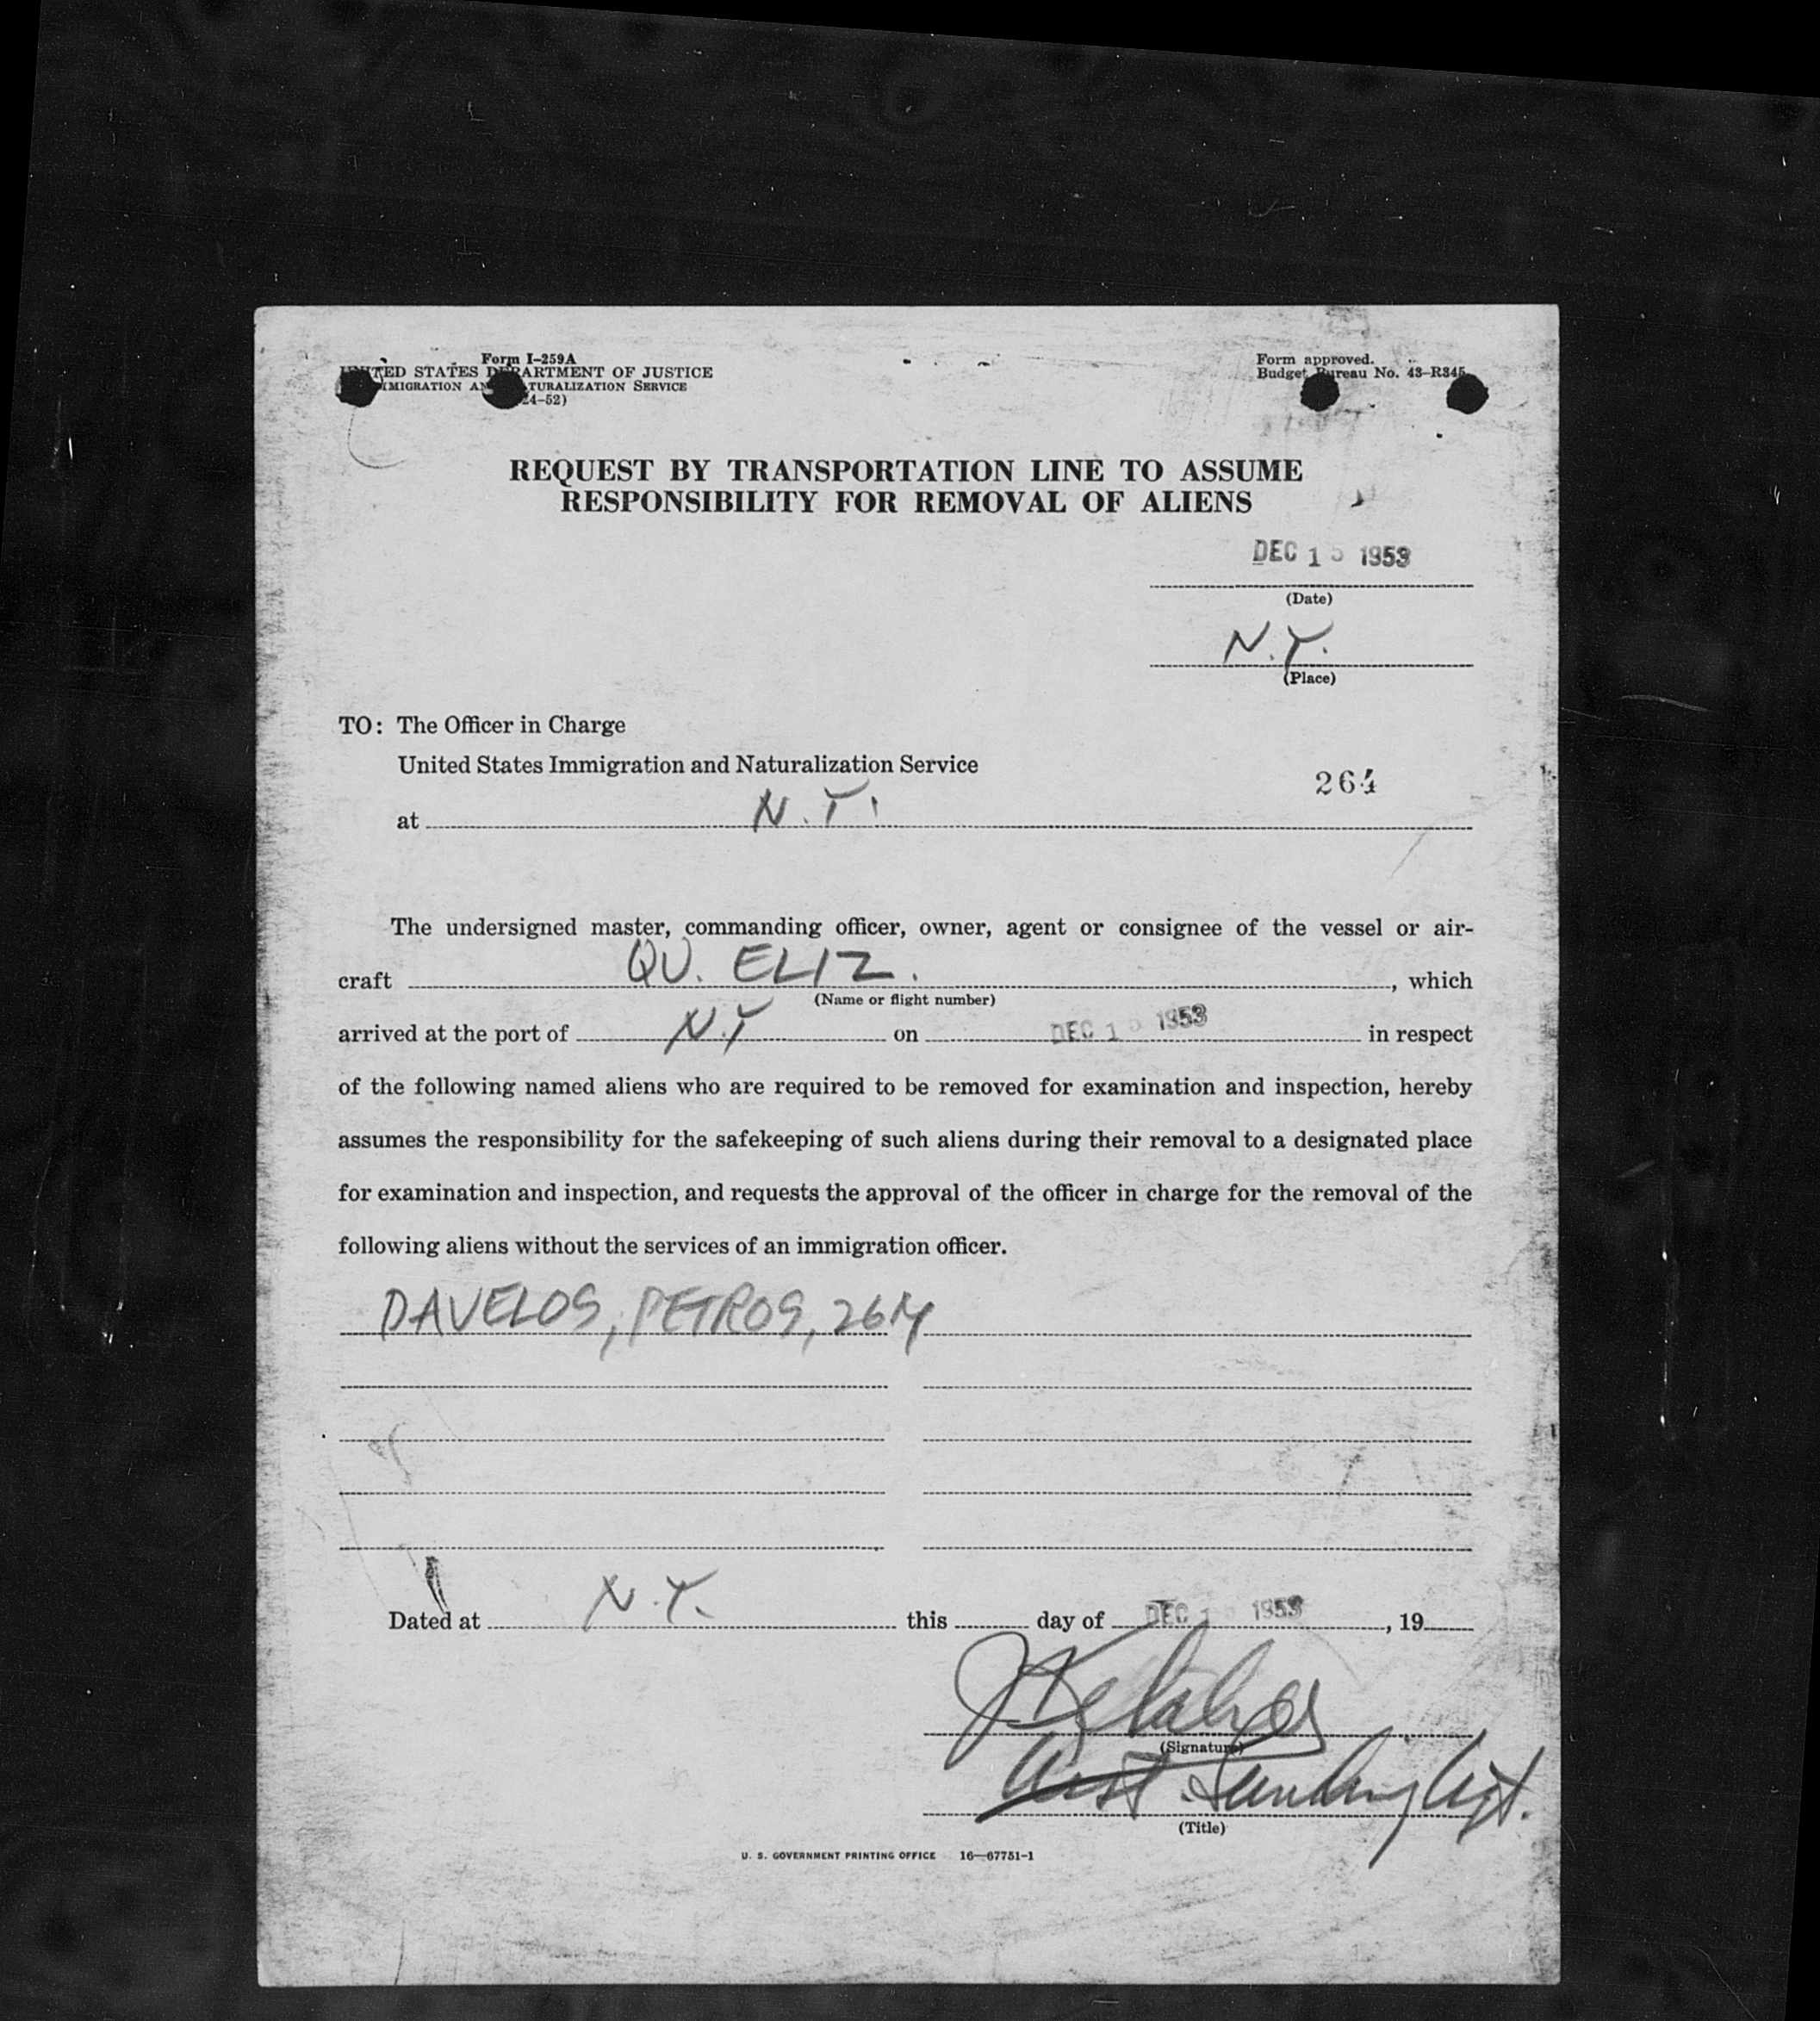 Form I-259A
UNITED STATES DEPARTMENT OF JUSTICE
IMMIGRATION AND NATURALIZATION SERVICE
4-52)
Form approved.
Budget Bureau No. 43-R345.
REQUEST BY TRANSPORTATION LINE TO ASSUME
RESPONSIBILITY FOR REMOVAL OF ALIENS
DEC 15 1953
(Date)
N.Y.
(Place)
TO: The Officer in Charge
United States Immigration and Naturalization Service
264
at N.Y.
The undersigned master, commanding officer, owner, agent or consignee of the vessel or air-
craft QU. ELIZ. , which
(Name or flight number)
arrived at the port of N.Y on DEC 15 1953 in respect
of the following named aliens who are required to be removed for examination and inspection, hereby
assumes the responsibility for the safekeeping of such aliens during their removal to a designated place
for examination and inspection, and requests the approval of the officer in charge for the removal of the
following aliens without the services of an immigration officer.
DAVELOS, PETROS, 26M
Dated at N.Y. this day of DEC 1953, 19
(Signature)
Asst Landing Agt.
(Title)
U. S. GOVERNMENT PRINTING OFFICE 16—67751-1